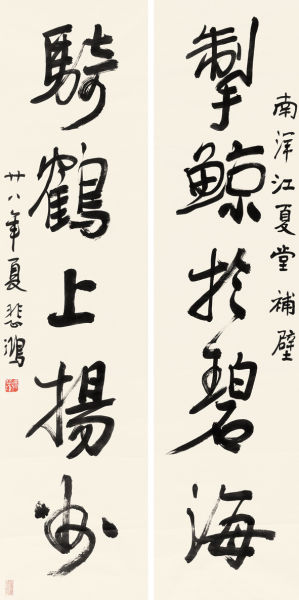 南洋江夏堂補壁
掣鯨於碧海
騎鶴上揚州
廿八年夏悲鴻